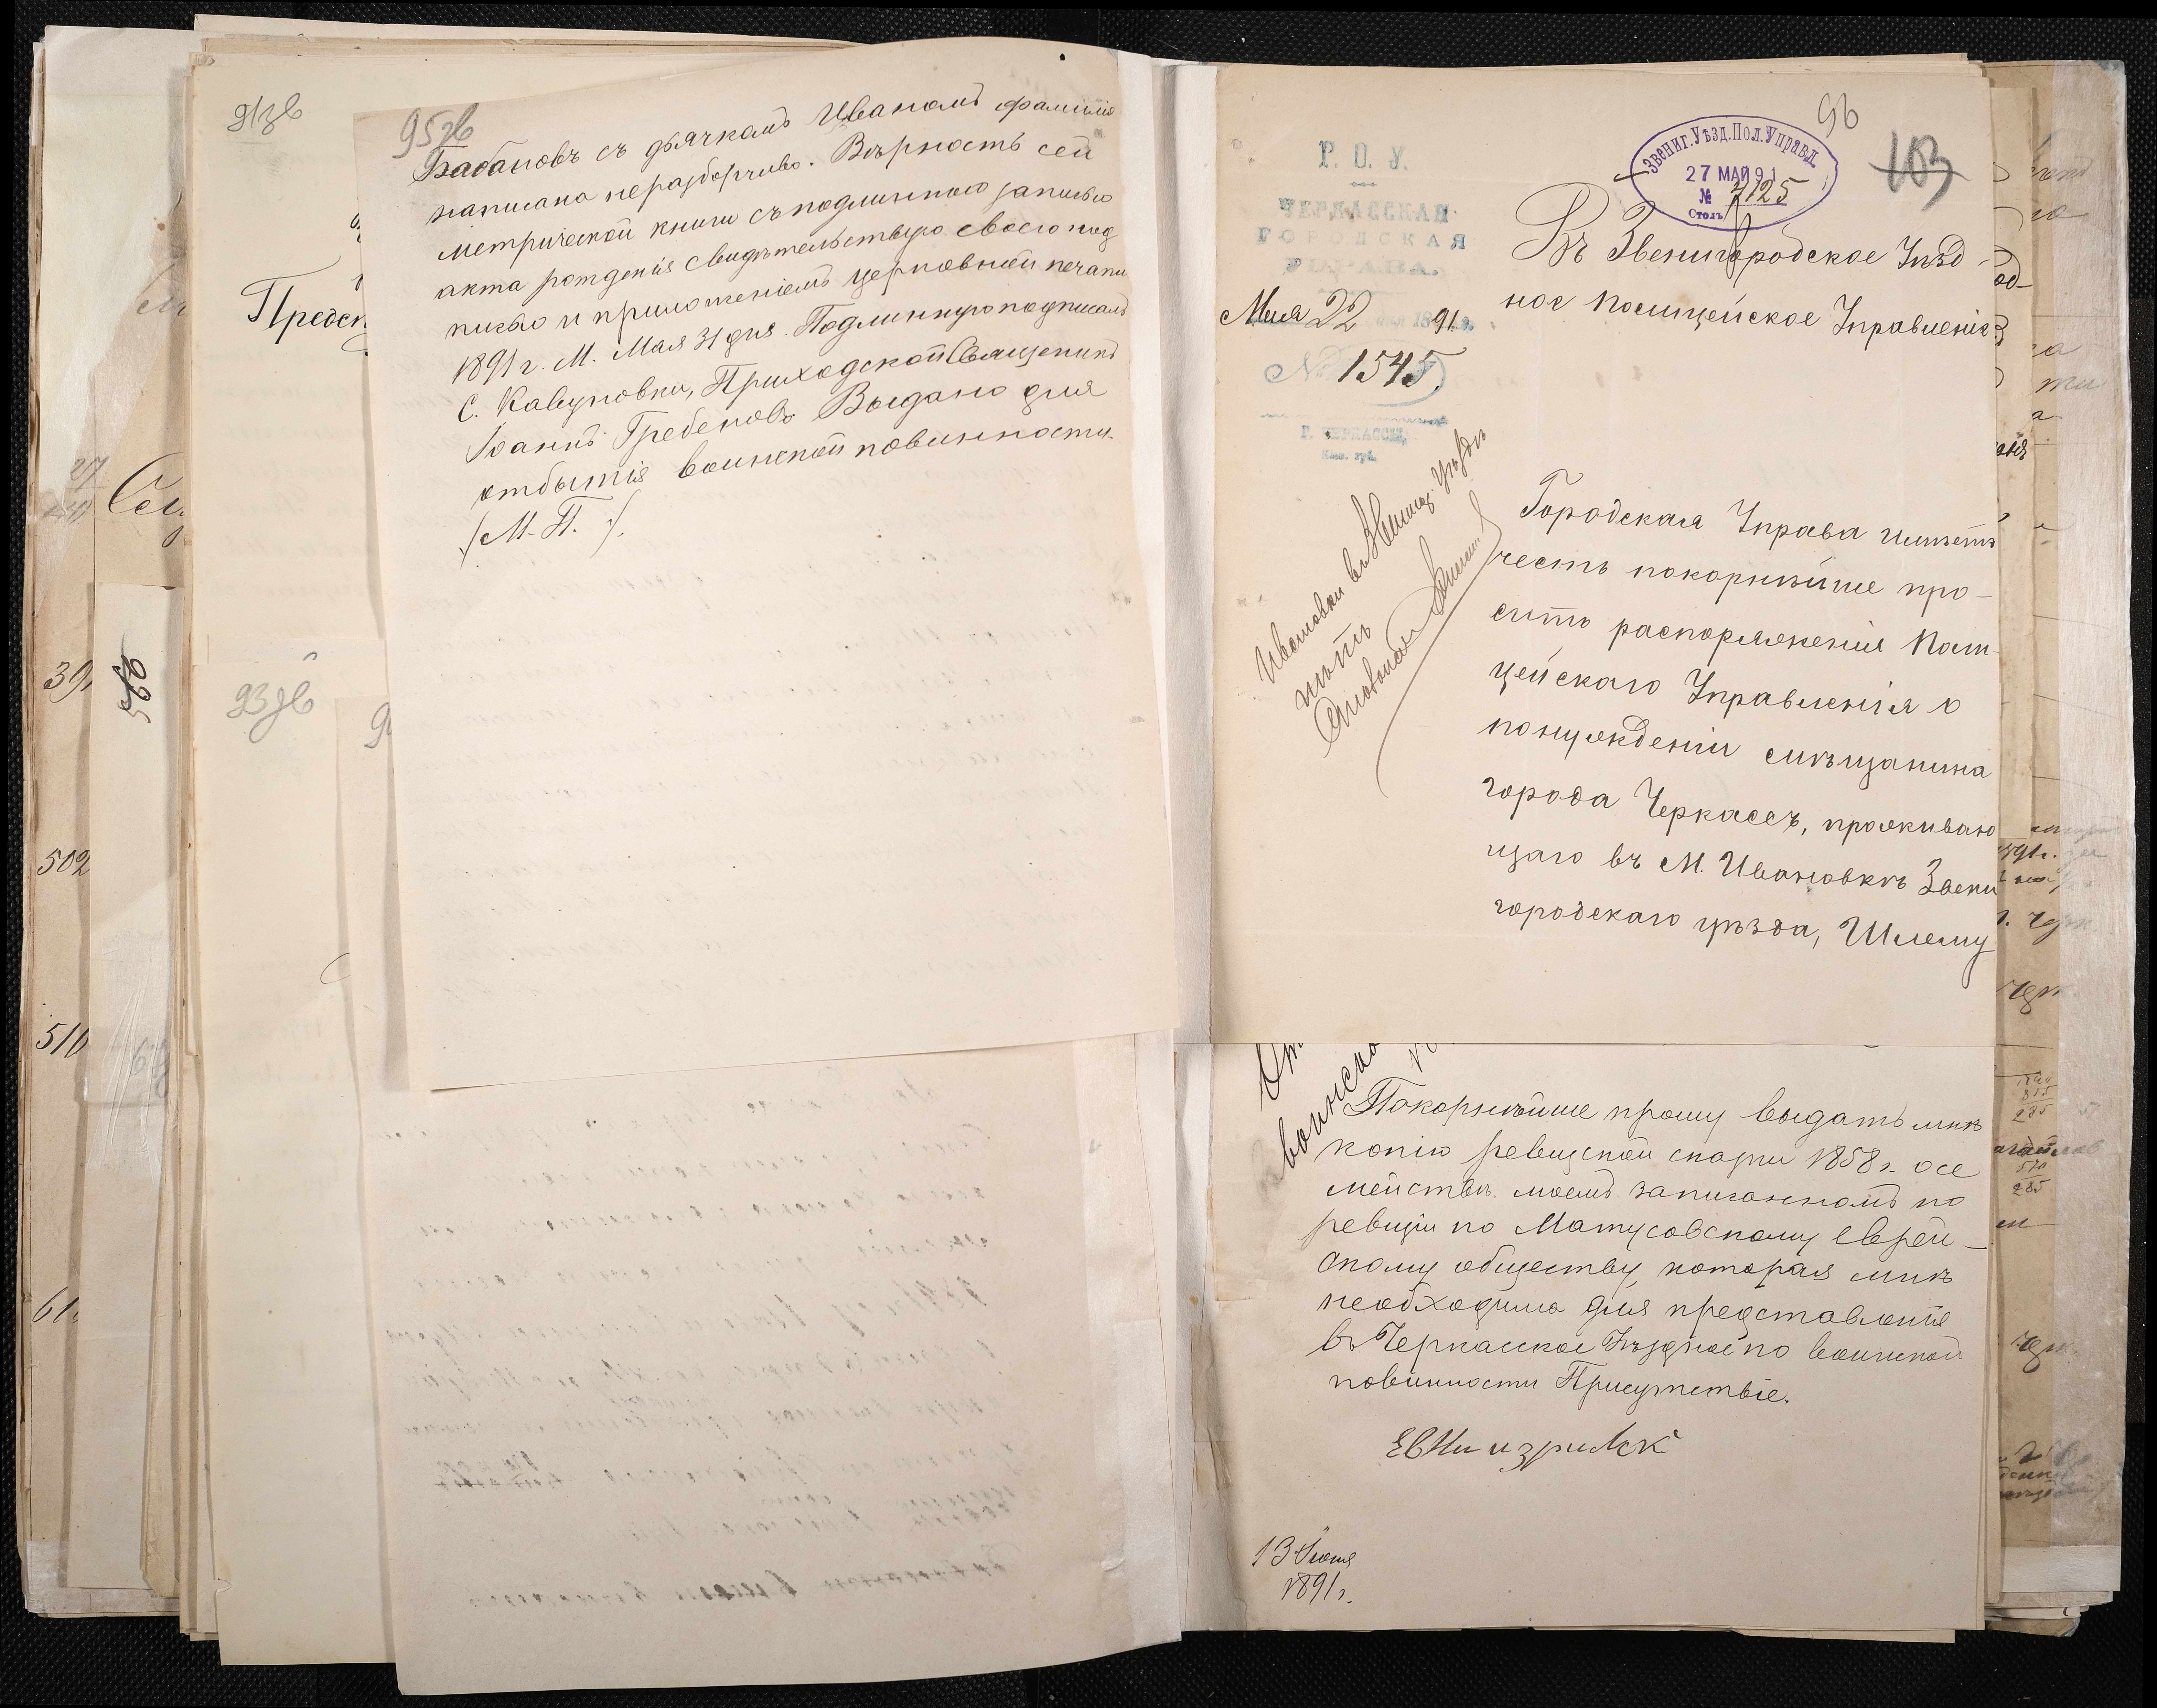 91зв
Предст
27
Сем
39
502
510
61
93зв
95зв
Бабановъ съ дьячкомъ Иваномъ фамилія
написана неразборчиво. Вѣрность сей
метрической книги съ подлинною записью
акта рожденія свидѣтельствую своею под
писью и приложеніемъ церковной печати
1891 г. М. Мая 31 дня. Подлинную подписалъ
С. Кавуновки, Приходской Священникъ
Іоаннъ Гребеновъ Выдано для
отбытія воинской повинности.
/М. П./.
96
103
Звениг. Уѣзд. Пол. Управл.
27 МАЙ 91
№ 7125
Столъ
Р. О. У.
ЧЕРКАССКАЯ
ГОРОДСКАЯ
УПРАВА.
Мая 22 дня 1891 г.
№ 1545.
Г. ЧЕРКАССЫ,
Кіев. губ.
Въ Звенигородское Уѣзд-
ное Полицейское Управленіе
Ивановки въ Звениг. Уѣздѣ
нѣтъ
Городская Управа имѣетъ
честь покорнѣйше про-
сить распоряженія Поли
цейскаго Управленія о
понужденіи смѣщанина
города Черкассъ, проживаю
щаго въ М. Ивановкѣ Звени
городскаго уѣзда, Шлему
воинско
Покорнѣйше прошу выдать мнѣ
копію ревизской сказки 1858 г. осе
мействѣ моемъ записанномъ по
ревизіи по Матусовскому еврей-
скому обществу, которая мнѣ
необходима для представленія
въ Черкасское Уѣздное по воинской
повинности Присутствіе.
13 Іюня
1891 г.